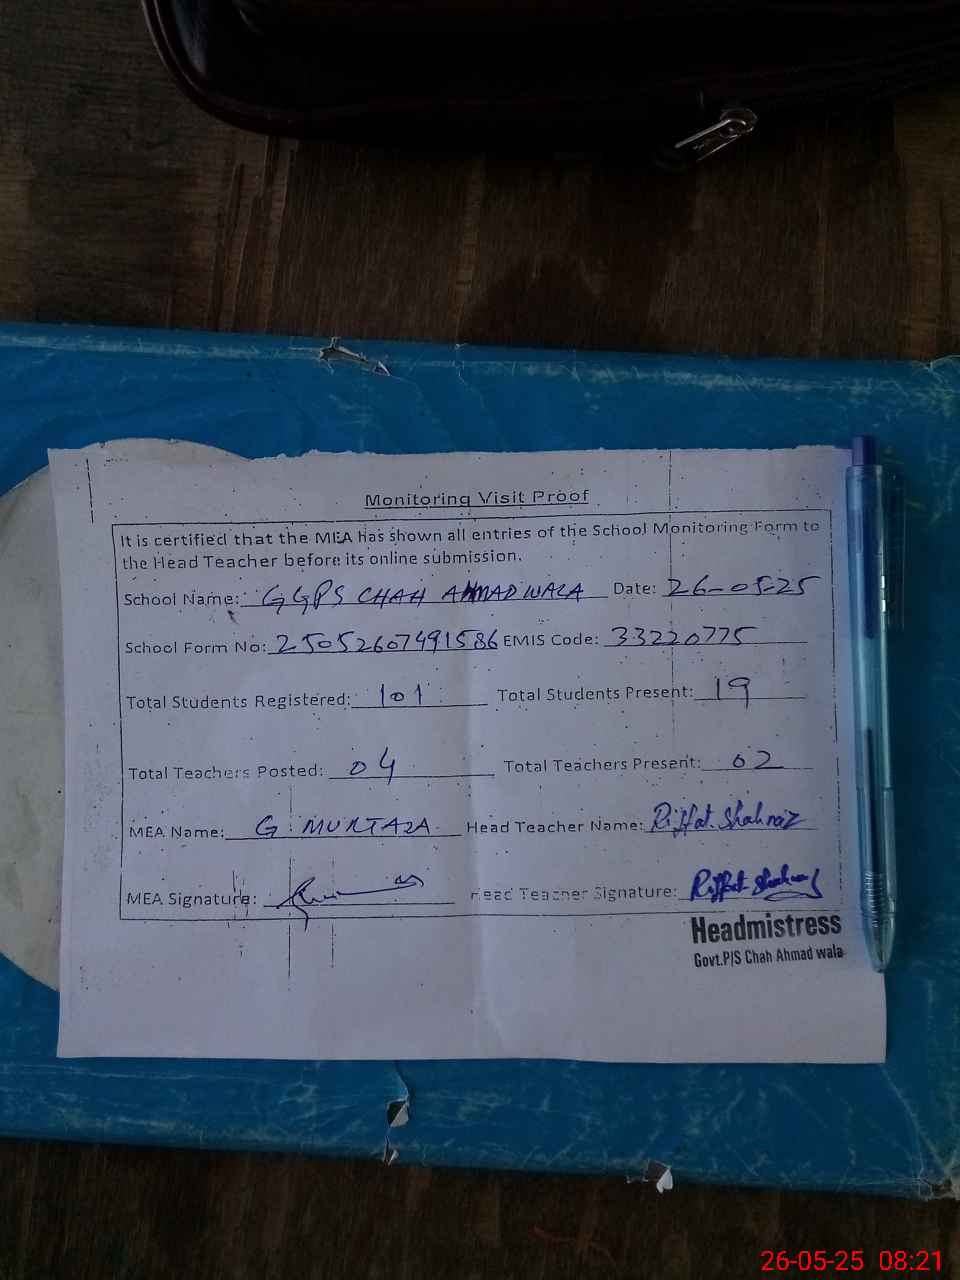 Monitoring Visit Proof
It is certified that the MEA has shown all entries of the School Monitoring Form to
the Head Teacher before its online submission.
School Name: GGPS CHAH AHMAD WALA Date: 26-05-25
School Form No: 25052607491586 EMIS Code: 33220775
Total Students Registered: 101 Total Students Present: 19
Total Teachers Posted: 04 Total Teachers Present: 02
MEA Name: G. MURTAZA Head Teacher Name: Riffat Shahnaz
MEA Signature: Head Teacher Signature: Riffat Shahnaz
Headmistress
Govt.P/S Chah Ahmad wala
26-05-25 08:21